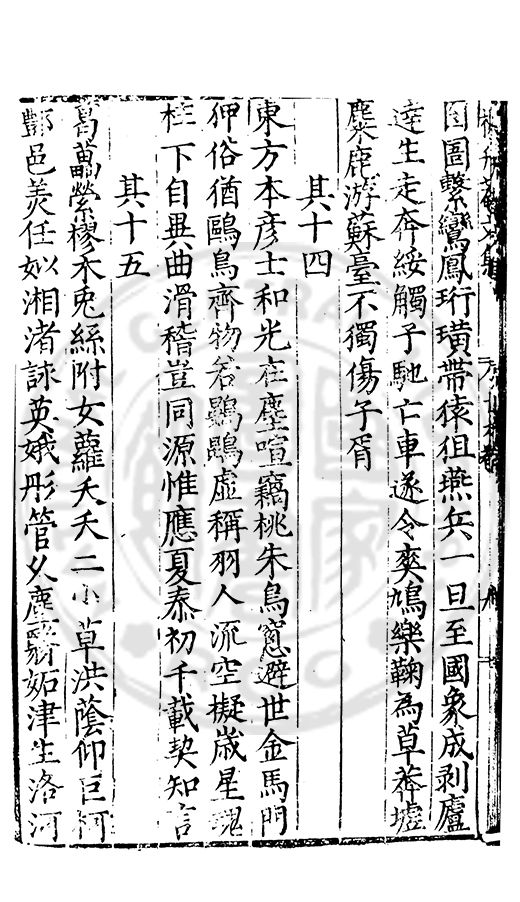 囹圄繫鸞鳳珩璜帶猿狙燕兵一旦至國象成剥廬
逹生走奔綏觸子馳亡車遂令爽鳩樂鞠為草莽墟
麋鹿游蘇臺不獨傷子胥
其十四
東方本彥士和光在塵喧竊桃朱鳥窓避世金馬門
狎俗猶鷗鳥齊物若鷃鵾虛稱羽人流空擬歲星魂
柱下自異曲滑稽豈同源惟應夏泰初千載契知言
其十五
葛藟縈樛木兎絲附女蘿夭夭二小草洪蔭仰巨柯
酆邑羙任姒湘渚詠英娥彤管久塵翳妬津生洛河